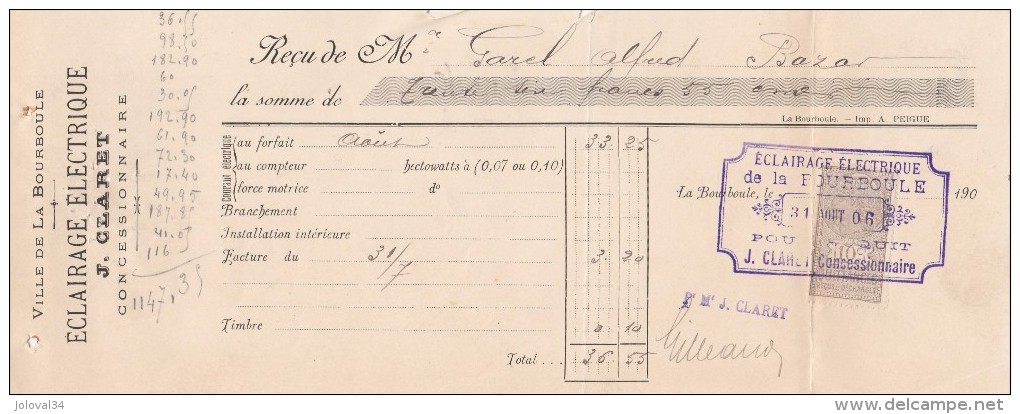 VILLE DE LA BOURBOULE
ÉCLAIRAGE ÉLECTRIQUE
J. CLARET
CONCESSIONNAIRE
36.55
98.50
182.90
60
30.05
192.90
61.90
72.30
17.40
49.95
187.85
41.05
116
1147,35
Reçu de M Garel Alfred Bazar
la somme de Trente six francs 55 cmes
La Bourboule. — Imp. A. PEIGUE
Courant électrique
au forfait Août 33 25
au compteur hectowatts à (0,07 ou 0,10)
force motrice d°
Branchement
Installation intérieure
Facture du 31/7 3. 20
Timbre 0 10
Total... 36 55
La Bourboule, le 190
ÉCLAIRAGE ÉLECTRIQUE
de la BOURBOULE
31 AOUT 06
POUR ACQUIT
J. CLARET Concessionnaire
Pr Mr J. CLARET
joloval34
© delcampe.net